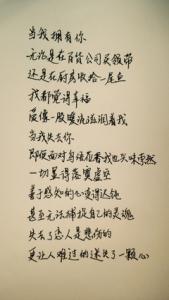 当我拥有你
无论是在百货公司买领带
还是在厨房收拾一尾鱼
我都觉得幸福
爱像一股暖流滋润着我
当我失去你
即使面对乌语花香我也兴味索然
一切显得落寞虚空
善于感知的心变得迟钝
甚至无法捕捉自己的灵魂
失去了恋人是悲伤的
更让人难过的迷失了一颗心